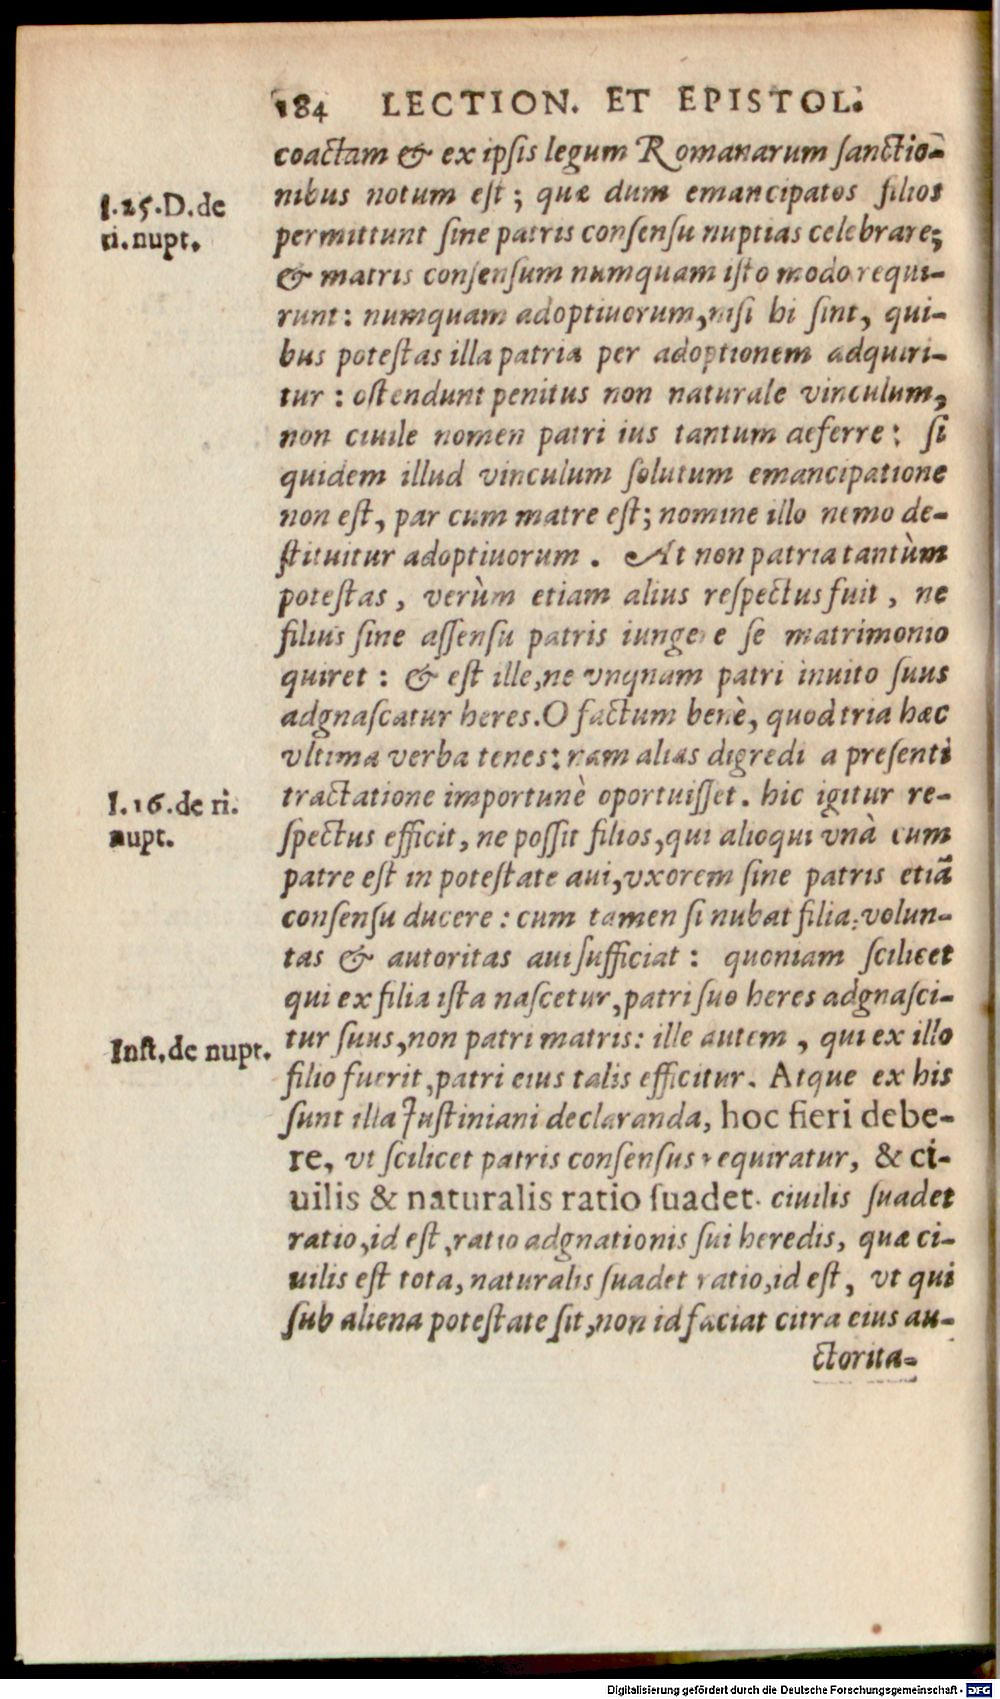 184 LECTION. ET EPISTOL.
coactam & ex ipſis legum Romanarum ſanctiō-
nibus notum eſt; quæ dum emancipatos filios
l.25.D.de
ri.nupt.
permittunt ſine patris conſenſu nuptias celebrare;
& matris conſenſum numquam iſto modo requi-
runt: numquam adoptiuorum, niſi hi ſint, qui-
bus poteſtas illa patria per adoptionem adquiri-
tur: oſtendunt penitus non naturale vinculum,
non ciuile nomen patri ius tantum deferre: ſi
quidem illud vinculum ſolutum emancipatione
non eſt, par cum matre eſt; nomine illo nemo de-
ſtituitur adoptiuorum. At non patria tantùm
poteſtas, verùm etiam alius reſpectus fuit, ne
filius ſine aſſenſu patris iungere ſe matrimonio
quiret: & eſt ille, ne vnqnam patri inuito ſuus
adgnaſcatur heres. O factum benè, quod tria hæc
vltima verba tenes: nam alias digredi a preſenti
tractatione importunè oportuiſſet. hic igitur re-
l.16.de ri.
nupt.
ſpectus efficit, ne poſſit filios, qui alioqui vnà cum
patre eſt in poteſtate aui, vxorem ſine patris etiā
conſenſu ducere: cum tamen ſi nubat filia, volun-
tas & autoritas aui ſufficiat: quoniam ſcilicet
qui ex filia iſta naſcetur, patri ſuo heres adgnaſci-
tur ſuus, non patri matris: ille autem, qui ex illo
Inſt.de nupt.
filio fuerit, patri eius talis efficitur. Atque ex his
ſunt illa Juſtiniani declaranda, hoc fieri debe-
re, vt ſcilicet patris conſenſus requiratur, & ci-
uilis & naturalis ratio ſuadet. ciuilis ſuadet
ratio, id eſt, ratio adgnationis ſui heredis, quæ ci-
uilis eſt tota, naturalis ſuadet ratio, id eſt, vt qui
ſub aliena poteſtate ſit, non id faciat citra eius au-
ctorita-
Digitalisierung gefördert durch die Deutsche Forschungsgemeinschaft - DFG